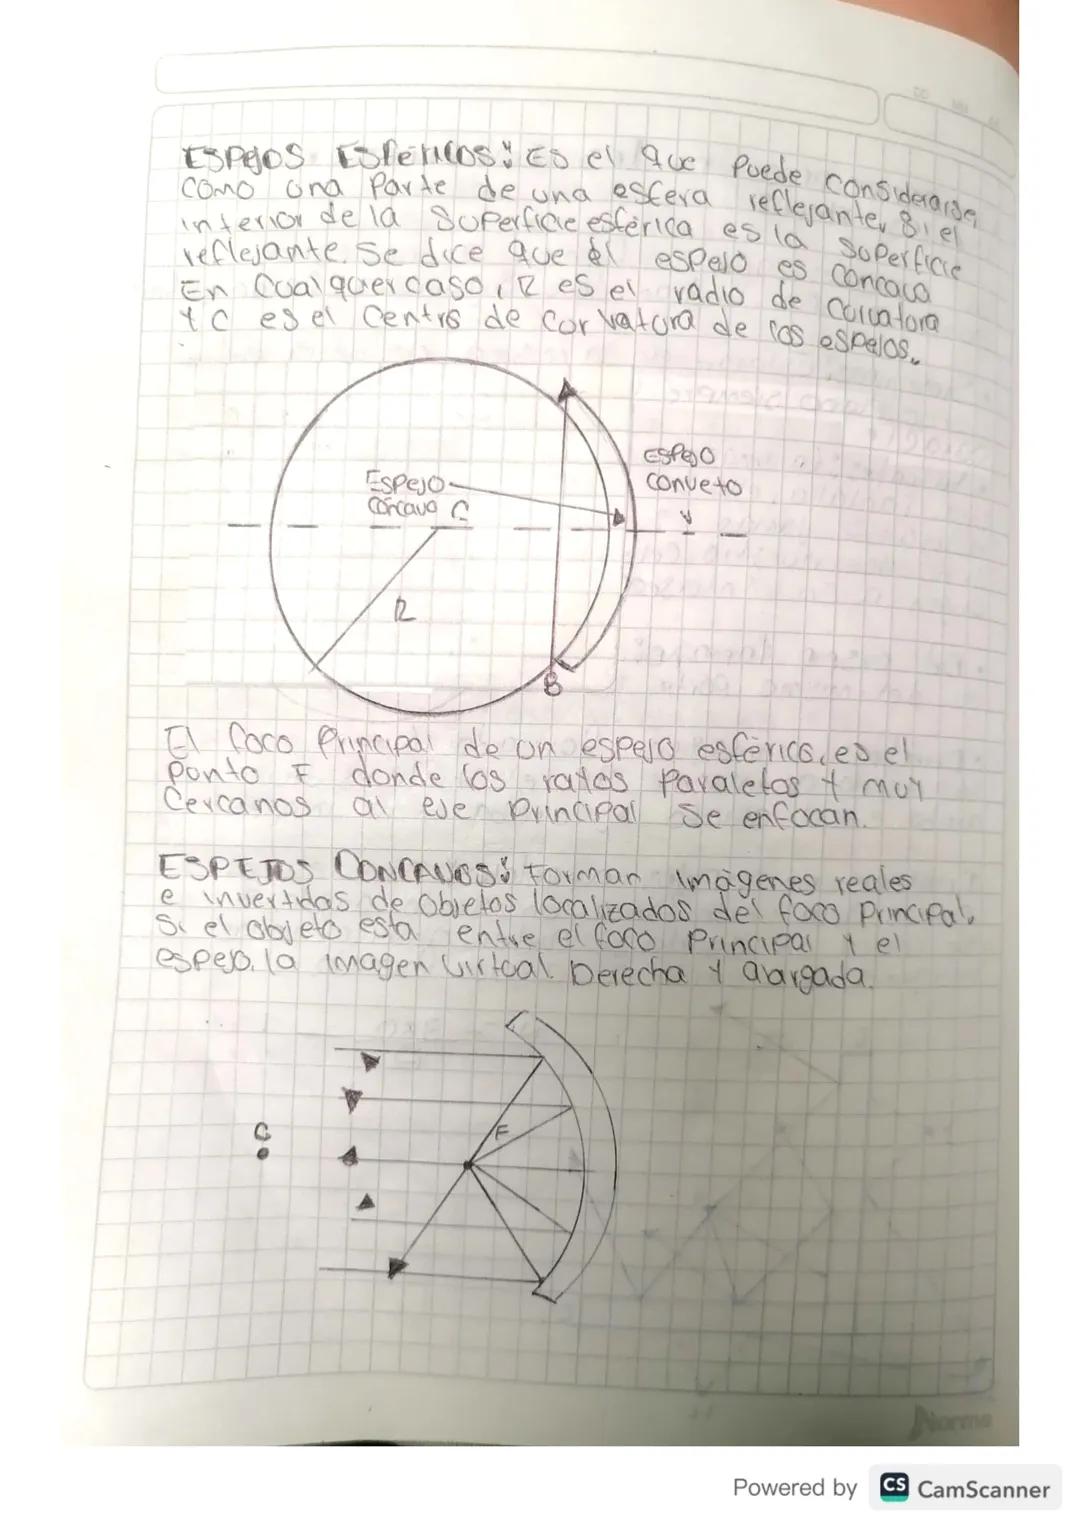 ESPEJOS ESFÉRICOS: ES el que Puede considerarse
como una Parte de una esfera reflejante, si el
interior de la Superficie esférica es la superficie
reflejante. Se dice que él espejo es concavo
En cualquer caso, R es el radio de curvatora
Y C es el Centro de corvatura de los espejos.
ESPEJO
CONVETO
ESPEJO
Concavo C
V
R
B
El foco Principal de un espejo esférico, es el
Punto F donde los rayos Paraletos Y muy
Cercanos al eje Principal Se enfocan.
ESPEJOS CONCAVOS: Forman imágenes reales
e invertidas de objetos localizados del foco Principal,
Si el objeto esta entre el foco Principal Y el
espejo. la imagen virtual. Derecha Y alargada.
C
F
Norma
Powered by CS CamScanner